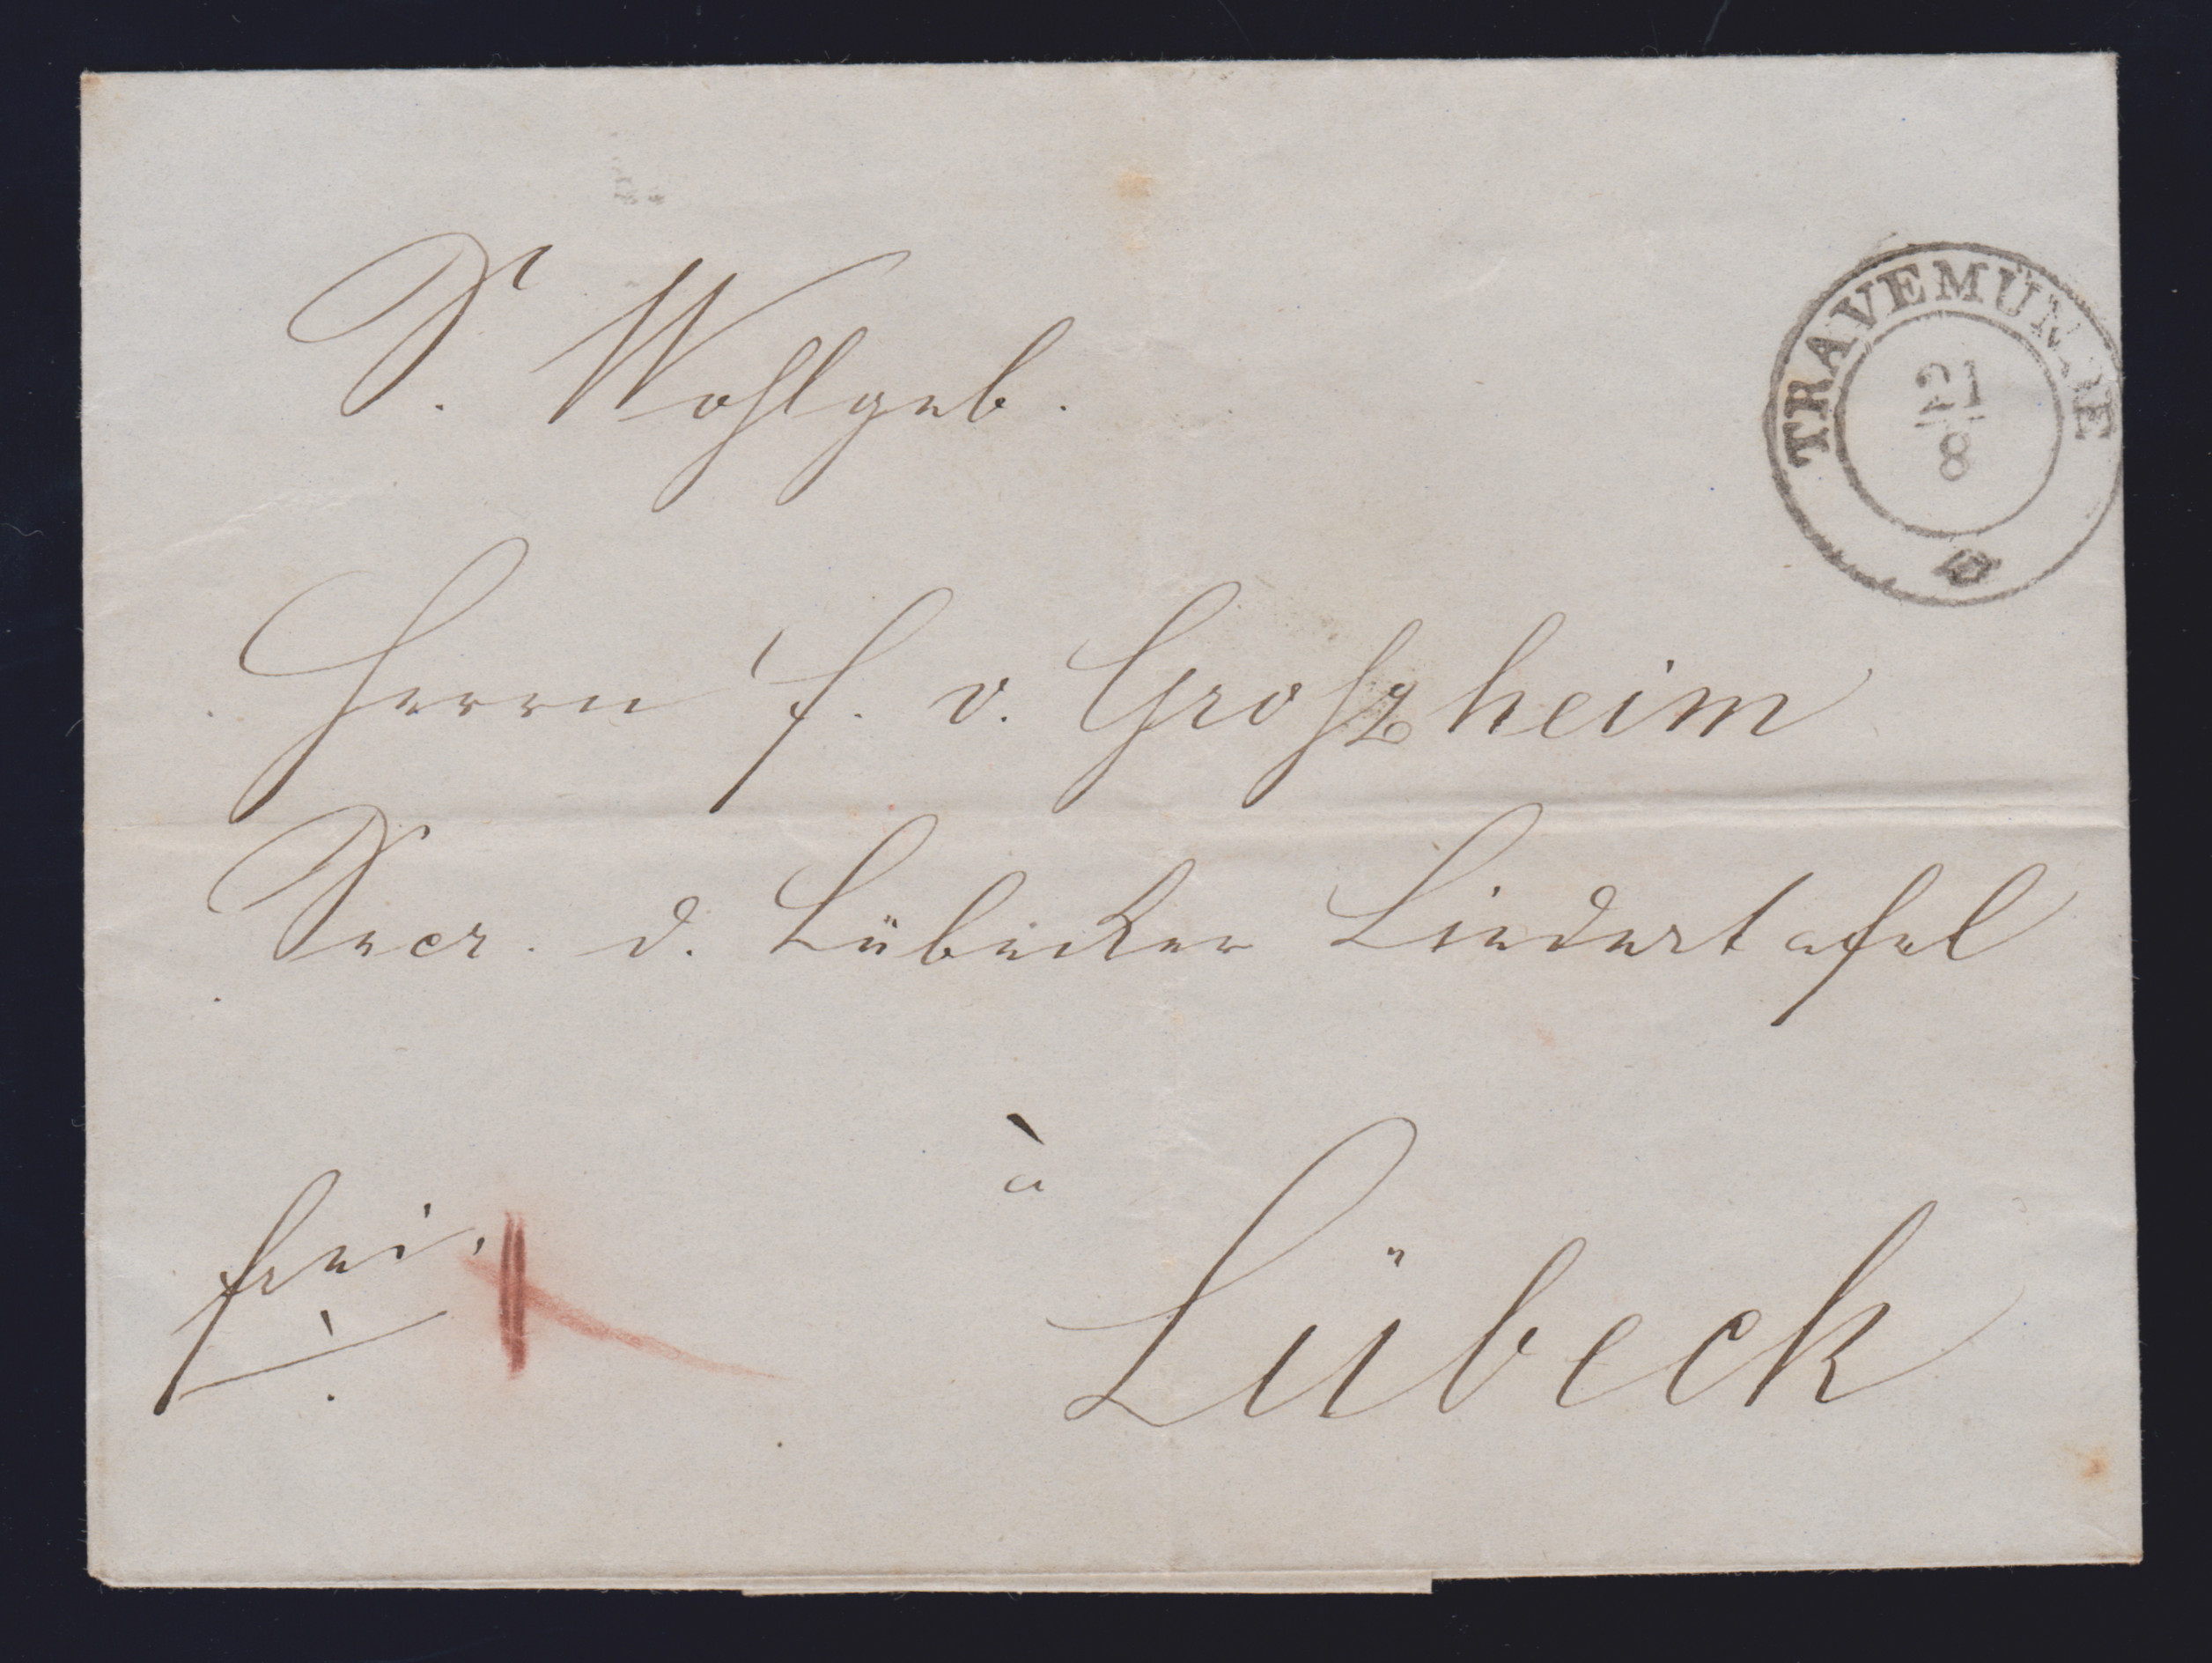 Sr. Wohlgeb.
TRAVEMÜNDE
21
8
Herrn F. v. Großheim
Secr. d. Lübecker Liedertafel
à
frei.
Lübeck